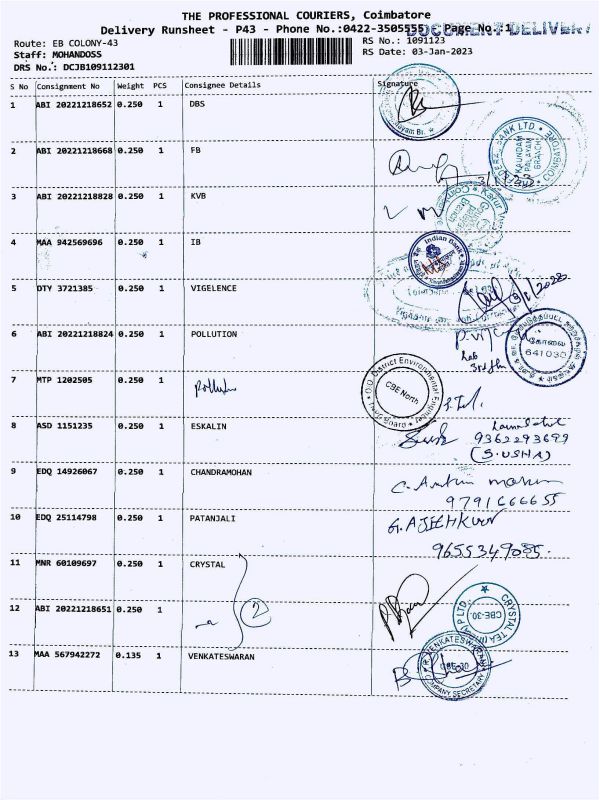 THE PROFESSIONAL COURIERS, Coimbatore
Delivery Runsheet - P43 - Phone No.:0422-3505555 Page No.: 1
DOCUMENT DELIVERY
Route: EB COLONY-43
Staff: MOHANDOSS
DRS No.: DCJB109112301
RS No.: 1091123
RS Date: 03-Jan-2023
S No Consignment No Weight PCS Consignee Details Signature
1 ABI 20221218652 0.250 1 DBS
2 ABI 20221218668 0.250 1 FB
BANK LTD. COIMBATORE
KAUNDAM PALAYAM BRANCH
3 ABI 20221218828 0.250 1 KVB
4 MAA 942569696 0.250 1 IB
Indian Bank
5 DTY 3721385 0.250 1 VIGELENCE
6 ABI 20221218824 0.250 1 POLLUTION
கோவை
641030
Lab
7 MTP 1202505 0.250 1 pollution
O/O. District Environmental Engineer
CBE North
8 ASD 1151235 0.250 1 ESKALIN
9362293699
(S.USHA)
9 EDQ 14926067 0.250 1 CHANDRAMOHAN
9791666655
10 EDQ 25114798 0.250 1 PATANJALI
G. AJITHKUMAR
9655349085.
11 MNR 60109697 0.250 1 CRYSTAL
2
12 ABI 20221218651 0.250 1
CRYSTAL TEA (I) P LTD
CBE-30.
13 MAA 567942272 0.135 1 VENKATESWARAN
R. VENKATESWARAN
CBE-30
COMPANY SECRETARY